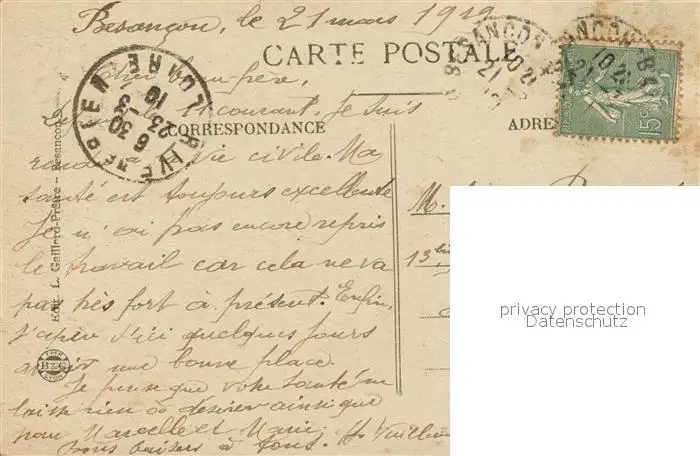 Besançon, le 21 mars 1919
CARTE POSTALE
Cher beau-frère,
Depuis le 11 courant, je suis
CORRESPONDANCE
ADRES
rendu à la vie civile. Ma
santé est toujours excellente
Je n'ai pas encore repris
le travail car cela ne va
pas très fort à présent. Enfin,
j'espère d'ici quelques jours
avoir une bonne place.
Je pense que votre santé ne
laisse rien à désirer ainsi que
pour Marcelle et Marie.
Bons baisers à tous. H. Vuillem
M.
13 bis
Edit. L. Gaillard-Prêtre - Besançon
RIVE-DE-GIER
LOIRE
6 30
23 -3
19
BESANÇON
21
5c
B&C
privacy protection
Datenschutz